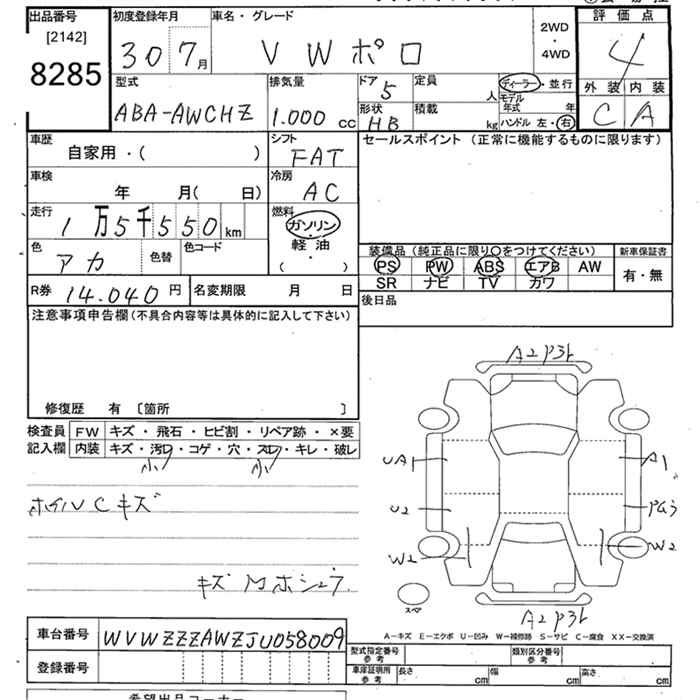 出品番号 初度登録年月 車名・グレード 2WD・4WD 評価点
[2142] 8285 30 7月 VWポロ 4
型式 排気量 ドア 定員 ディーラー・並行 外装 内装
ABA-AWCHZ 1.000 cc 5 人 モデル年式 年 C A
形状 積載 ハンドル 左・右
HB kg
車歴 シフト セールスポイント (正常に機能するものに限ります)
自家用・( ) FAT
車検 冷房
年 月( 日) AC
走行 燃料
1万5千550km ガソリン・軽油 ( ・ )
色 色替 色コード 装備品 (純正品に限り○をつけてください) 新車保証書
アカ PS PW ABS エアB AW 有・無
SR ナビ TV カワ
R券 14.040円 名変期限 月 日 後日品
注意事項申告欄(不具合内容等は具体的に記入して下さい)
修復歴 有 〔箇所 〕
検査員 FW キズ・飛石・ヒビ割・リペア跡・×要
記入欄 内装 キズ・汚レ・コゲ・穴・スレ・キレ・破レ
小 小
ホイルCキズ
A2 P31
UA A1
U2
W2 W2
スペア
A2 P31
A−キズ E−エクボ U−凹み W−補修跡 S−サビ C−腐食 XX−交換済
車台番号 WVWZZZAWZJU058009
登録番号
型式指定番号 参考 類別区分番号 参考
車庫証明用 参考 長さ cm 幅 cm 高さ cm
希望出品コーナー